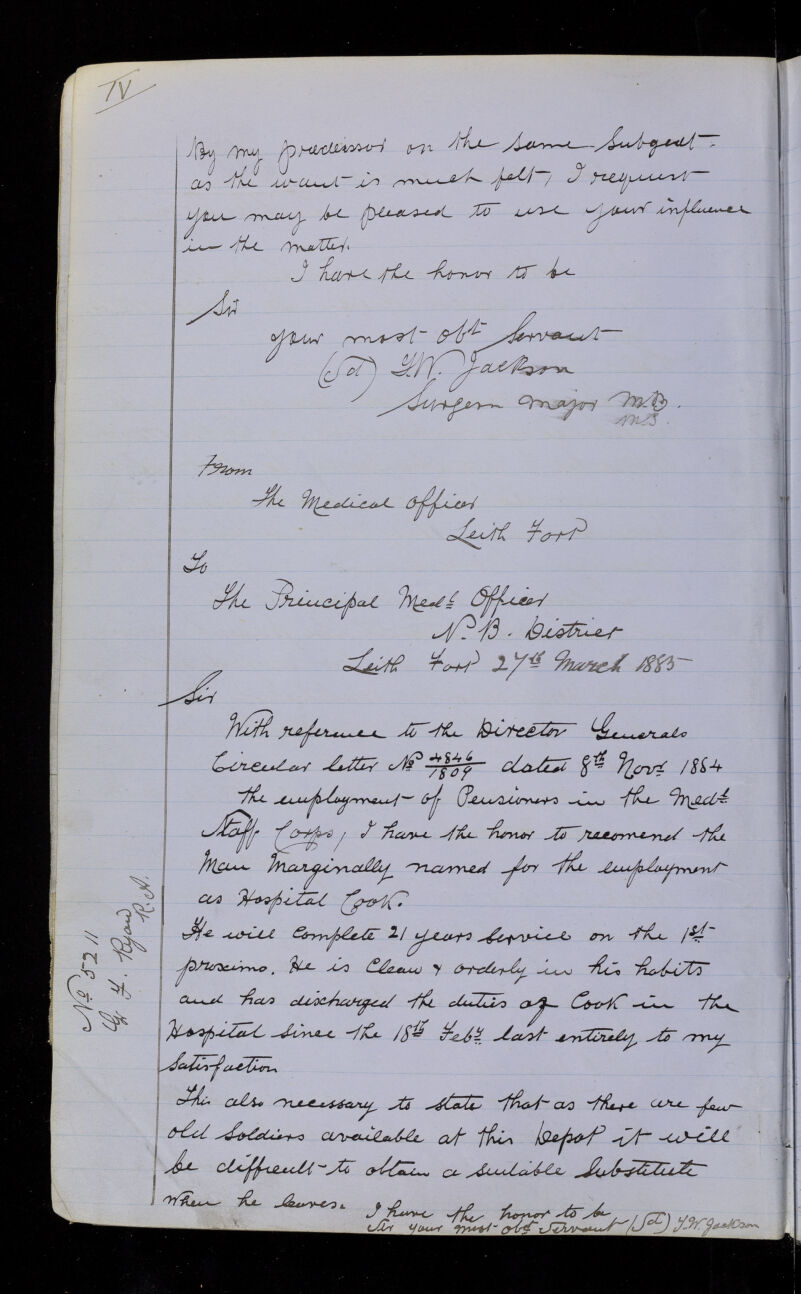 IV
By my prædeissor on the same Subgeat.
as the want is much felt, I request
you may be pleased to use your influence
in the matter.
I have the honor to be
Sir
your most obt Servant
(Sd) T.W. Jackson
Surgeon Major M.B.
M.B.
From
The Medical Officer
Leith Fort
To
The Principal Medl Officer
N. B. District
Leith Fort 27th March 1885
Sir
With reference to the Director Generals
Circular letter No 4846/1809 dated 8th Novr 1884
the employment of Pensioners in the Medl
Staff Corps, I have the honor to recomend the
Man Marginally named for the employment
as Hospital Cook.
No 5211
Gr F. Ryan
R.A.
He will complete 21 years Service on the 1st
proximo. He is Clean & orderly in his habits
and has discharged the duties of Cook in the
Hospital Since the 18th Feby last entirely to my
Satisfaction
This also necessary to state that as there are few
old Soldiers available at this Depot it will
be difficult to obtain a Suitable Substitute
when he leaves.
I have the honor to be
Sir your most obt Servant (Sd) T.W. Jackson